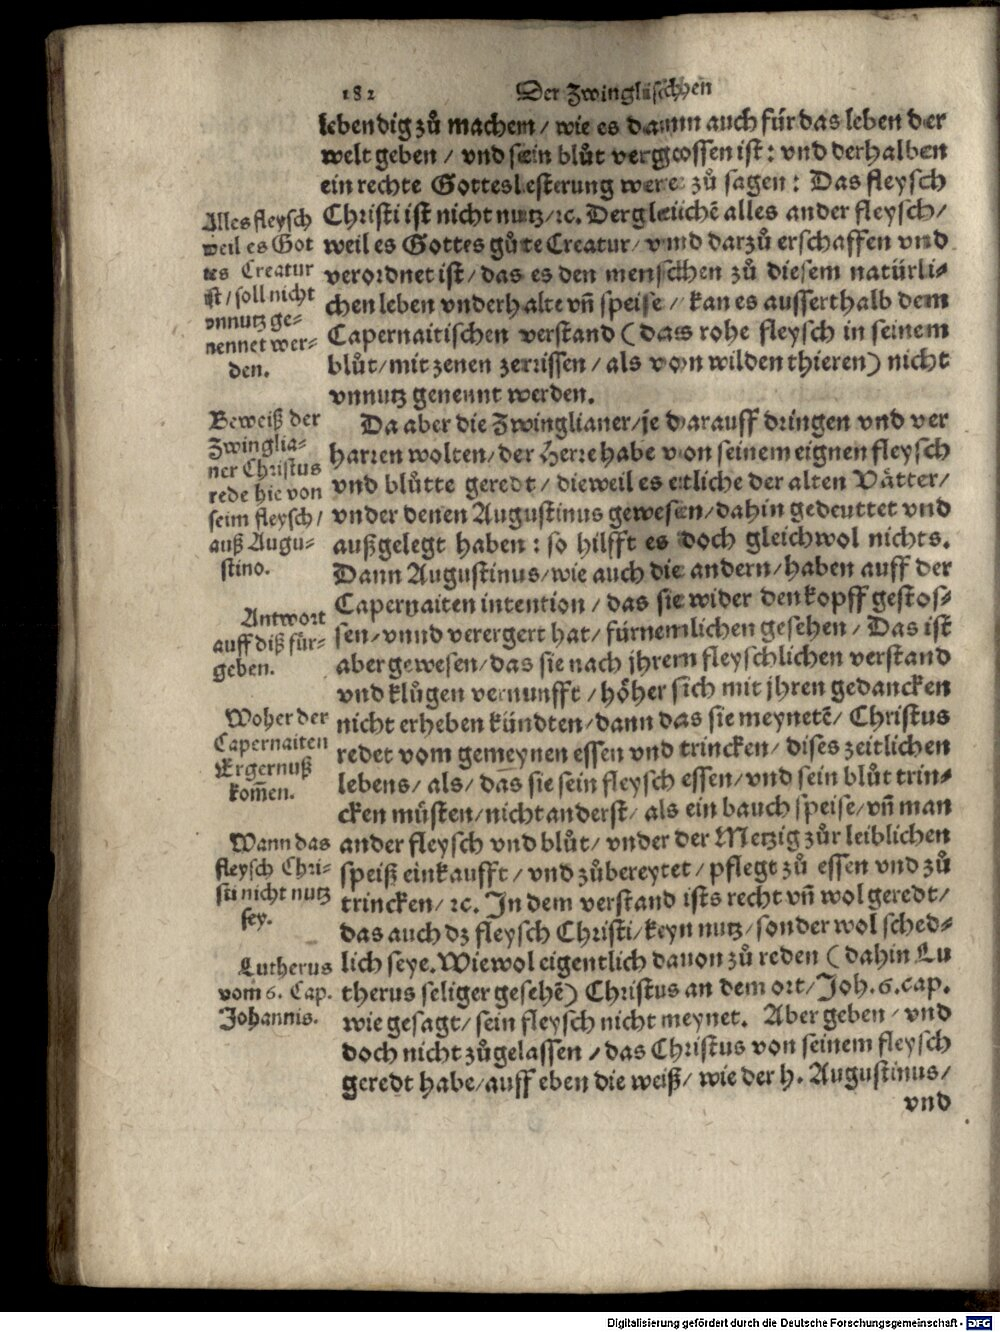 182 Der Zwinglischen
lebendig zuͦ machem / wie es damm auch fuͤr das leben der
welt geben / vnd sein bluͦt vergossen ist: vnd derhalben
ein rechte Gotteslesterung were zuͦ sagen: Das fleysch
Christi ist nicht nutz / ꝛc. Dergleichẽ alles ander fleysch /
weil es Gottes guͦte Creatur / vnd darzuͦ erschaffen vnd
verordnet ist / das es den menschen zuͦ diesem natuͤrli⸗
chen leben vnderhalte vñ speise / kan es ausserthalb dem
Capernaitischen verstand (das rohe fleysch in seinem
bluͦt / mit zenen zerrissen / als von wilden thieren) nicht
vnnutz genennt werden.
Da aber die Zwinglianer / je darauff dringen vnd ver
harren wolten / der Herre habe von seinem eignen fleysch
vnd bluͦtte geredt / dieweil es etliche der alten Vaͤtter /
vnder denen Augustinus gewesen / dahin gedeuttet vnd
außgelegt haben: so hilfft es doch gleichwol nichts.
Dann Augustinus / wie auch die andern / haben auff der
Capernaiten intention / das sie wider den kopff gestos⸗
sen / vnnd verergert hat / fuͤrnemlichen gesehen / Das ist
aber gewesen / das sie nach jhrem fleyschlichen verstand
vnd kluͦgen vernunfft / hoͤher sich mit jhren gedancken
nicht erheben kuͤndten / dann das sie meynetẽ / Christus
redet vom gemeynen essen vnd trincken / dises zeitlichen
lebens / als / das sie sein fleysch essen / vnd sein bluͦt trin⸗
cken muͤsten / nicht anderst / als ein bauch speise / vñ man
ander fleysch vnd bluͦt / vnder der Metzig zuͦr leiblichen
speiß einkaufft / vnd zuͦbereytet / pflegt zuͦ essen vnd zuͦ
trincken / ꝛc. In dem verstand ists recht vñ wol geredt /
das auch dz fleysch Christi / keyn nutz / sonder wol sched⸗
lich seye. Wiewol eigentlich dauon zuͦ reden (dahin Lu
therus seliger gesehẽ) Christus an dem ort / Joh. 6. cap.
wie gesagt / sein fleysch nicht meynet. Aber geben / vnd
doch nicht zuͦgelassen / das Christus von seinem fleysch
geredt habe / auff eben die weiß / wie der h. Augustinus /
vnd
Alles fleysch
weil es Got
tes Creatur
ist / soll nicht
vnnutz ge⸗
nennet wer⸗
den.
Beweiß der
Zwinglia⸗
ner Christus
rede hie von
seim fleysch /
auß Augu⸗
stino.
Antwort
auff diß fuͤr⸗
geben.
Woher der
Capernaiten
Ergernuß
kom̃en.
Wann das
fleysch Chri⸗
sti nicht nutz
sey.
Lutherus
vom 6. Cap.
Johannis.
Digitalisierung gefördert durch die Deutsche Forschungsgemeinschaft - DFG